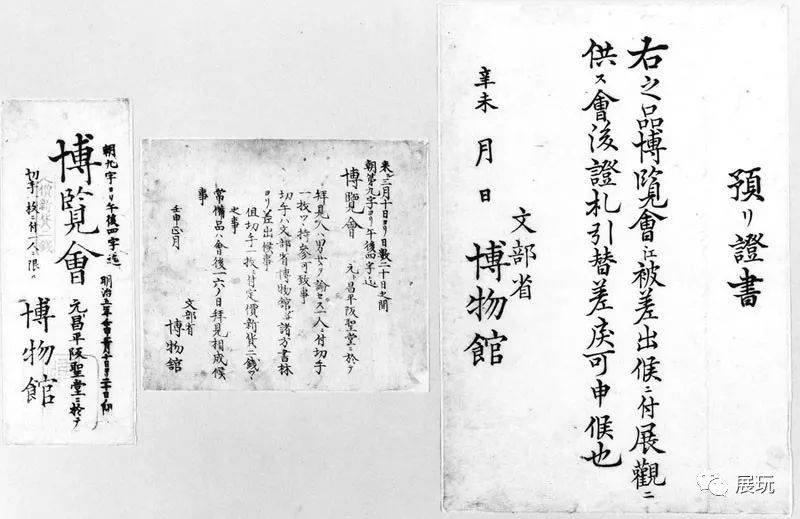 預リ證書
右之品博覽會江被差出候ニ付展觀ニ
供ス會後證札引替差戻可申候也
辛未 月 日
文部省
博物館
来三月十日ヨリ日數二十日之間
朝第九字ヨリ午後四字迄
博覽會 元昌平阪聖堂ニ於テ
拜見人ハ男女ヲ論セス一人ニ付切手
一枚ツヽ持参可致事
切手ハ文部省博物館并諸方書林
ヨリ差出候事
但切手一枚ニ付定價新貨二錢ツヽ
之事
常備品ハ會後一六ノ日拜見相成候
事
壬申正月
文部省
博物館
朝九字ヨリ午後四字迄
明治五年壬申三月十日ヨリ二十日ノ間
博覽會
元昌平阪聖堂ニ於テ
切手一枚ニ付一人ニ限ル
博物館
展玩